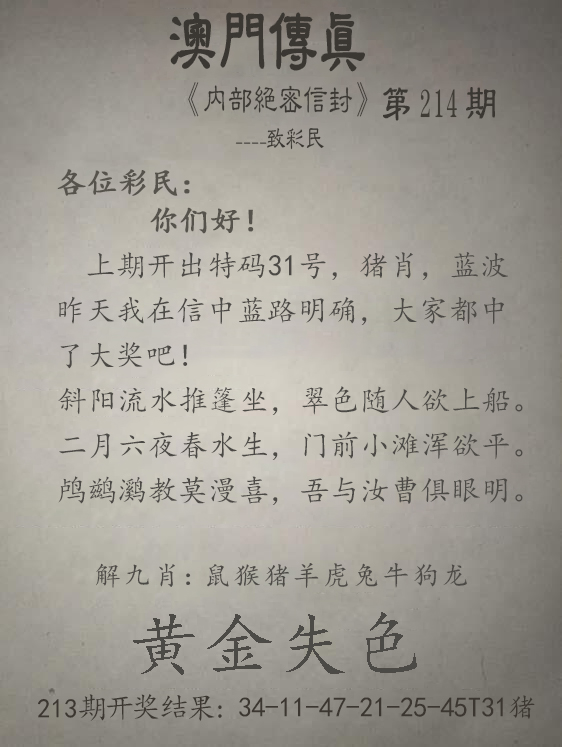 澳門傳真
《内部絕密信封》第214期
----致彩民
各位彩民：
你们好！
上期开出特码31号，猪肖，蓝波
昨天我在信中蓝路明确，大家都中
了大奖吧！
斜阳流水推篷坐，翠色随人欲上船。
二月六夜春水生，门前小滩浑欲平。
鸬鹚鸂教莫漫喜，吾与汝曹俱眼明。
解九肖：鼠猴猪羊虎兔牛狗龙
黄金失色
213期开奖结果：34-11-47-21-25-45T31猪